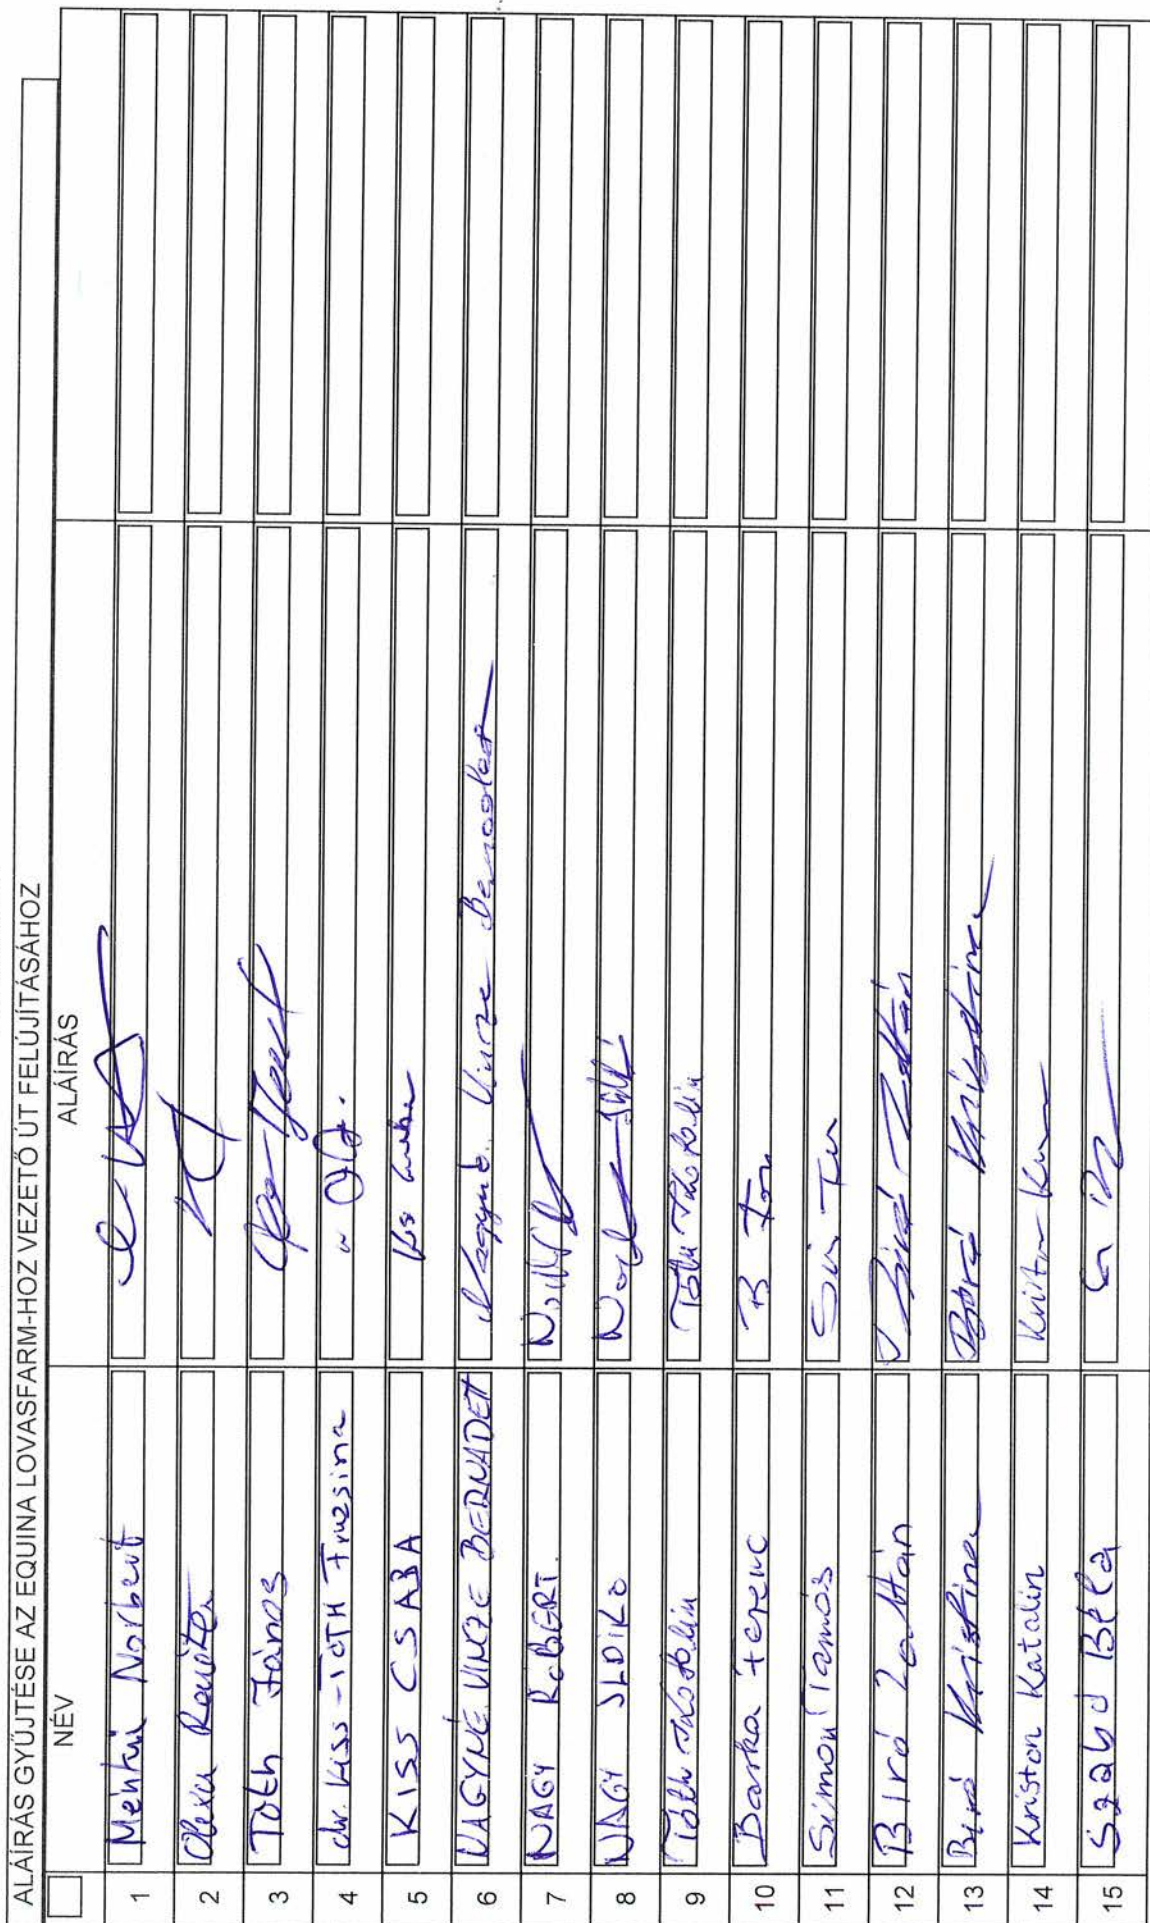 ALÁÍRÁS GYŰJTÉSE AZ EQUINA LOVASFARM-HOZ VEZETŐ ÚT FELÚJÍTÁSÁHOZ
NÉV ALÁÍRÁS
1 Norbert
2 Renáta
3 Tóth János
4 dr. Kiss-Tóth Fruzsina
5 KISS CSABA Kiss Csaba
6 NAGYNÉ VINCZE BERNADETT Nagyné Vincze Bernadett
7 NAGY RÓBERT
8 NAGY ILDIKÓ Nagy Ildikó
9 Tóth Katalin Tóth Katalin
10 Barka Ferenc
11 Simoni Tamás
12 Bíró Zoltán Bíró Zoltán
13 Bíró Krisztina Bíró Krisztina
14 Kriston Katalin
15 Szabó Béla